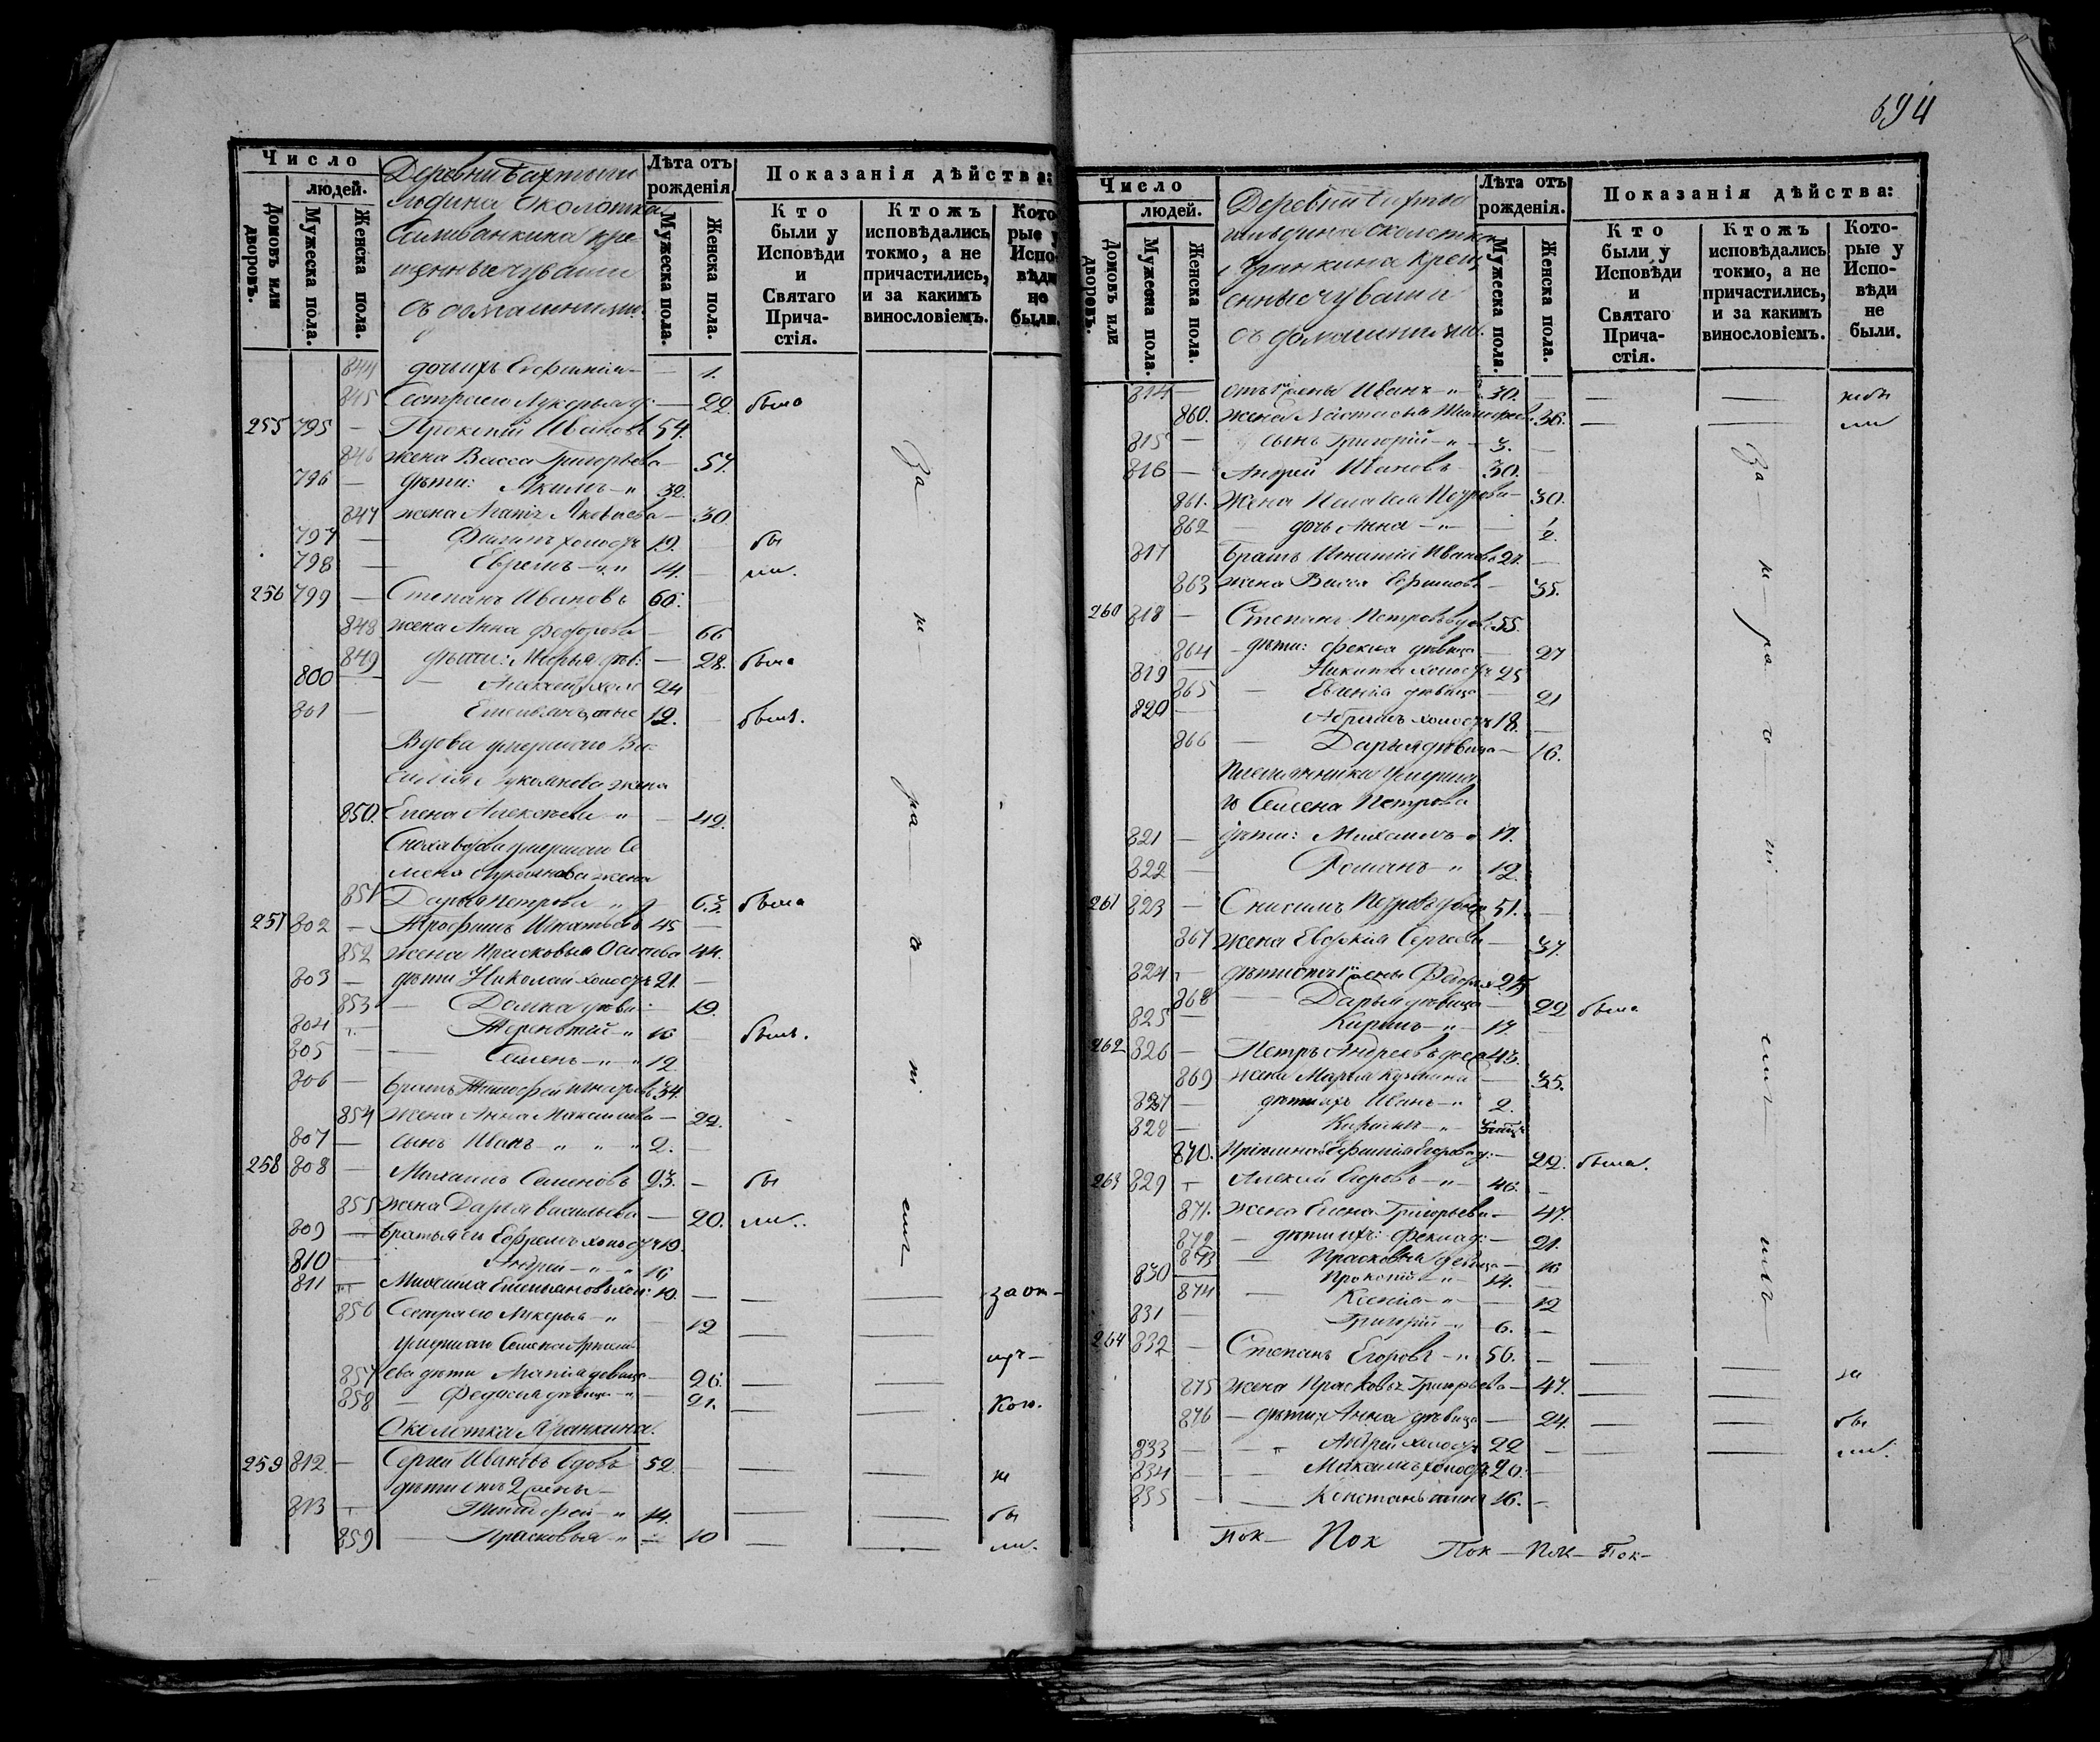 594
Число
людей.
Домовъ или дворовъ.
Мужеска пола.
Женска пола.
Деревни
Околотка
Селиванкина кре-
щенные чуваши
съ домашними.
Лѣта отъ рожденія
Мужеска пола.
Женска пола.
Показанія дѣйства:
Кто были у Исповѣди и Святаго Прича-стія.
Ктожъ исповѣдались токмо, а не причастились, и за какимъ винословіемъ.
Кото-рые у Испо-вѣди не были.
844 дочь ихъ — 1.
845 Сестра его Лукерья — 22. была
255 795 — Ивановъ 54.
846 жена Васса Григорьева — 57.
796 — дѣти: Акимъ — " 32.
847 жена Агапія Яковлева — 30.
797 — Филипъ холостъ 19. — бы
798 — Ефремъ — " " 14. — ли.
256 799 — Степанъ Ивановъ 60. —
848 жена Анна Федорова — 66
849 дѣти: Марья — 28. была
800 — Алексей хол 24
801 — 12. — былъ.
Вдова умершаго Ва-
силія Лукоянова жена
850. Елена Алексѣева " — 42.
Сноха вдова умершаго Се
мена Лукоянова жена
851 Дарья Петрова " 63. была
257 802 — Трофимъ Игнатьевъ 45 —
852 жена Прасковья Осипова 44.
803 — дѣти Николай холостъ 21. —
853 — Домна — 19.
804 — Терентій — " 16 — былъ.
805 — Семенъ — " — " 12
806 — братъ Тимофей Игнатьевъ 34.
854 жена Анна Максимова — 22.
807 — сынъ Иванъ — " " " 2. —
258 808 — Михаилъ Семеновъ 23. — бы
855 жена Дарья Васильева — 20. ли.
809 — братья его Ефремъ холостъ 19.
810 — Андрей — " — " 16
811 — Емельяновъ хол: 10. — — — за от-
856 Сестра его Лукерья — " — 12
умершаго Семена
857 ева дѣти Агапія девица — 26.
858 — Федосья дѣвица " — 21. — — Кою.
Околотка Яранкина.
259 812 — Сергей Ивановъ вдовъ 52. — — — не
дѣти отъ 2 жены —
813 — Тимофей — " 14. — — бы
859 — Прасковья — " — 10 — — ли.
За — не — ра — с — т. — емъ
Число
людей.
Домовъ или дворовъ.
Мужеска пола.
Женска пола.
Деревни
околотка
Яранкина крещ
енные чуваши
съ домашними.
Лѣта отъ рожденія.
Мужеска пола.
Женска пола.
Показанія дѣйства:
Кто были у Исповѣди и Святаго Прича-стія.
Ктожъ исповѣдались токмо, а не причастились, и за какимъ винословіемъ.
Кото-рые у Испо-вѣди не были.
814 — отъ 1 жены Иванъ — " 30. — — —
860. жена Настасья Тимофеева 36. — — ли
815 — сынъ Григорій — " — 3. —
816 — Андрей Ивановъ 30. —
861. жена Пелагея Петрова — 30.
862 — дочь Анна — " — 1/2.
817 братъ Игнатій Ивановъ 27. —
863 жена Васса Ефимова — 35.
260 818 — Степанъ Петровъ вдовъ 55.
864 — дѣти: Фекла дѣвица — 27
819 — Никита холостъ 25
865 — Евгенія дѣвица — 21
820 — Абрамъ холостъ 18. —
866 — Дарья дѣвица — 16.
Племянника умерша
го Семена Петрова
821 — дѣти: Михаилъ " 17.
822 — Романъ — " 12.
261 823 — Онисимъ Петровъ 51. —
867 жена Евдокія Сергеева — 37.
824 — дѣти отъ 1 жены Федоръ 25
868 — Дарья дѣвица — 22 была
825 — Кирилъ — " 17. —
262 826 — Петръ Андреевъ 43.
869 жена Марья Кузмина — 35.
827 — дѣти ихъ Иванъ — " 2.
828 — Кирилъ — "
870. Егорова — 22. была.
263 829 — Алексей Егоровъ — " 46. —
871. жена Елена Григорьева — 47.
872 — дѣти ихъ: Фекла д: — 21.
873 — Прасковья девица — 16
830 — Прокопій — " 14. —
874 — Ксенія — " — 12
831 — Григорій — " 6. —
264 832 — Степанъ Егоровъ — " 56. —
875 жена Прасковья Григорьева — 47. — — не
876 — дѣти Анна дѣвица — 24. — — бы
833 — — Андрей холостъ 22 — — — ли.
834 — — Максимъ холостъ 20. —
835 — — Константинъ 16. —
За — не — ра — с — т. — емъ
Пок — Пок Пок — Пок — Пок —